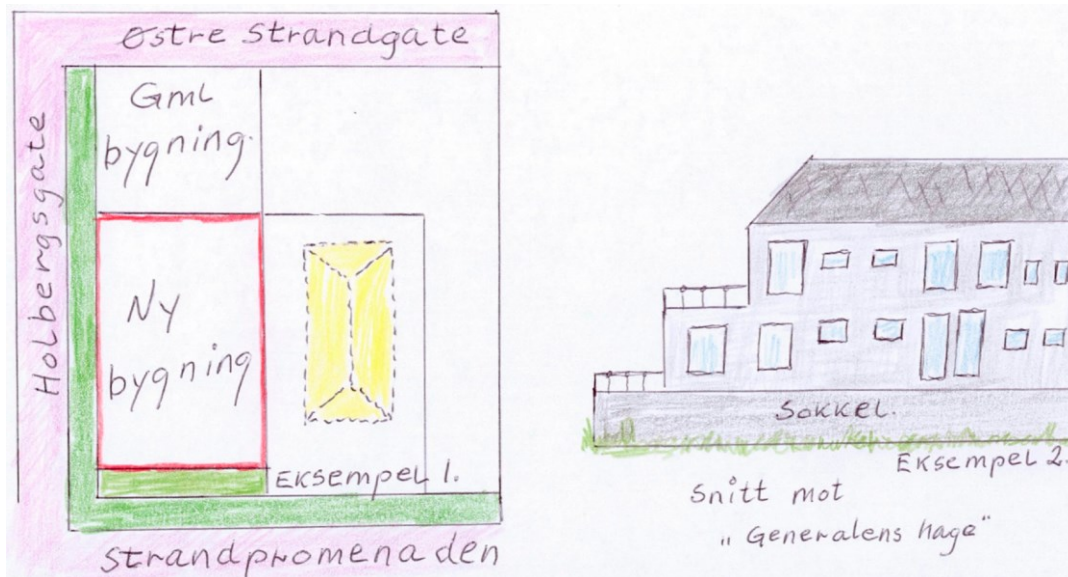 Østre Strandgate
Gml
bygning.
Holbergsgate
Ny
bygning
Eksempel 1.
Strandpromenaden
Sokkel.
Eksempel 2.
Snitt mot
„Generalens hage"